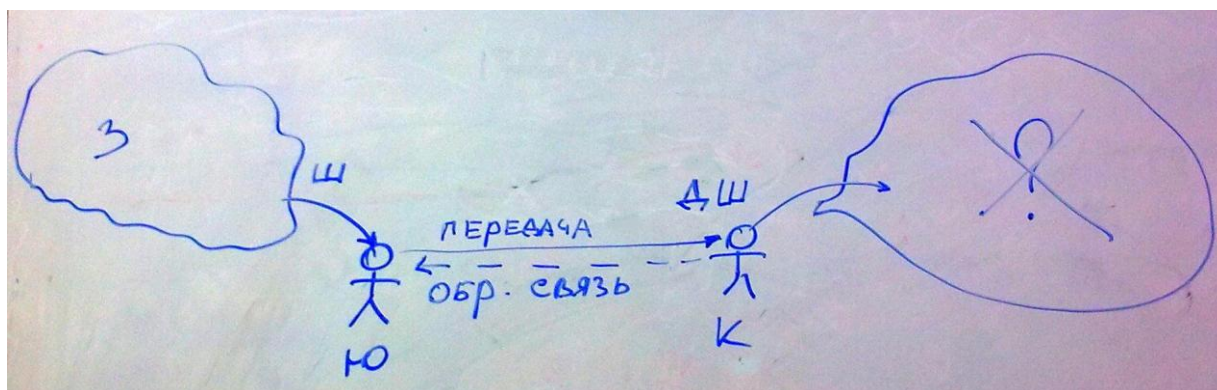 З
?
Ш
ДШ
ПЕРЕДАЧА
ОБР. СВЯЗЬ
Ю
К